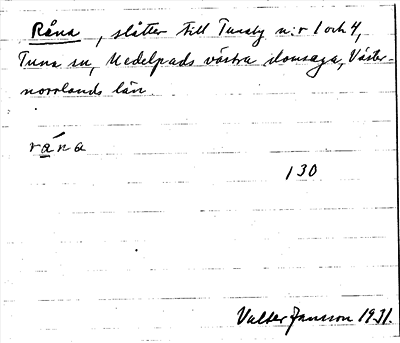 Råna, slåtter till Tunaby n:r 1 och 4,
Tuna sn, Medelpads västra domsaga, Väster-
norrlands län.
råna
130
Valter Jansson 1931.